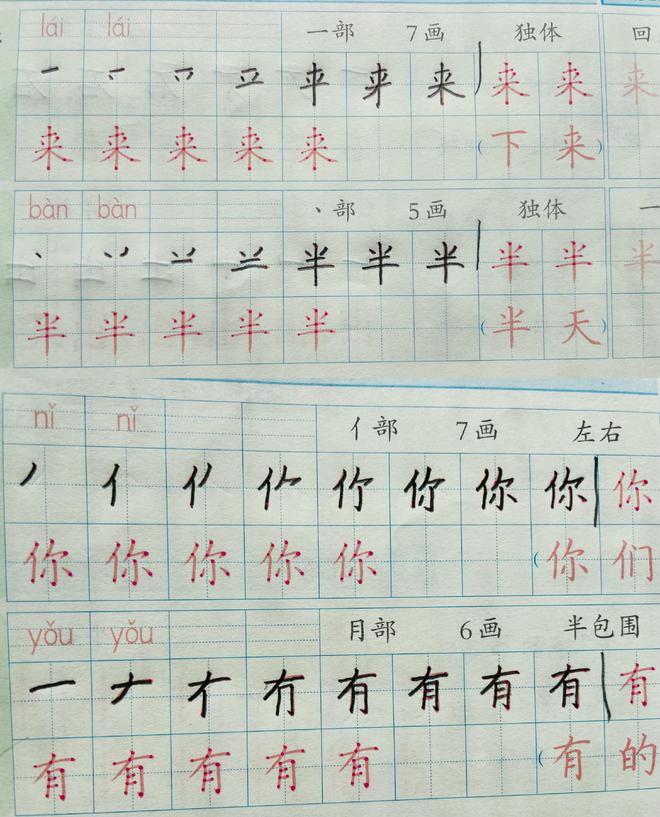 lái lái 一部 7画 独体 回
一 来 来 来 来 来 来
来 来 来 来 来 (下 来)
bàn bàn 丶部 5画 独体 一
丶 半 半 半 半 半 半
半 半 半 半 半 (半 天)
nǐ nǐ 亻部 7画 左右
丿 亻 你 你 你 你
你 你 你 你 你 (你 们
yǒu yǒu 月部 6画 半包围
一 有 有 有 有 有
有 有 有 有 有 (有 的